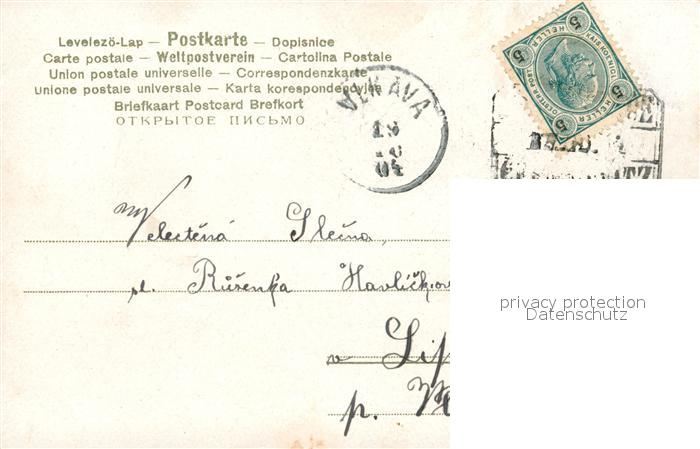 Levelező-Lap — Postkarte — Dopisnice
Carte postale — Weltpostverein — Cartolina Postale
Union postale universelle — Correspondenzkarte
Unione postale universale — Karta korespondencyjna
Briefkaart Postcard Brefkort
ОТКРЫТОЕ ПИСЬМО
5 HELLER 5
KAIS. KOENIGL.
OESTERR. POST
5 HELLER 5
VLKAVA
19
04
Velectěná Slečna,
sl. Růženka Havlíčkov
v Lip
p.
privacy protection
Datenschutz